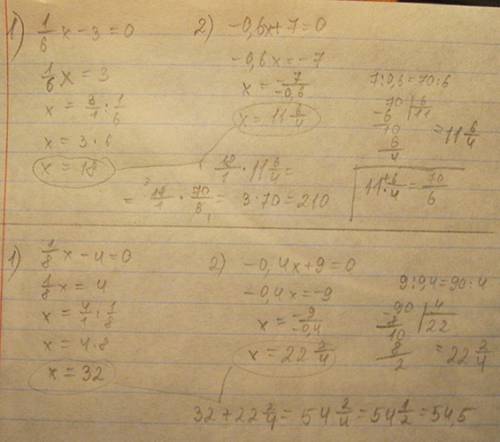 1) 1/6 x - 3 = 0
1/6 x = 3
x = 3/1 : 1/6
x = 3 · 6
x = 18
2) -0,6x + 7 = 0
-0,6x = -7
x = -7/-0,6
x = 11 6/4
7 : 0,6 = 70 : 6
70 | 6
-6 | 11
10
6
4
= 11 6/4
18/1 · 11 6/4 =
= 18/1 · 70/6 = 3 · 70 = 210
11 · 6/4 = 70/6
1) 1/8 x - 4 = 0
1/8 x = 4
x = 4/1 : 1/8
x = 4 · 8
x = 32
2) -0,4x + 9 = 0
-0,4x = -9
x = -9/-0,4
x = 22 2/4
9 : 0,4 = 90 : 4
-90 | 4
8 | 22
10
8
2
= 22 2/4
32 + 22 2/4 = 54 2/4 = 54 1/2 = 54,5